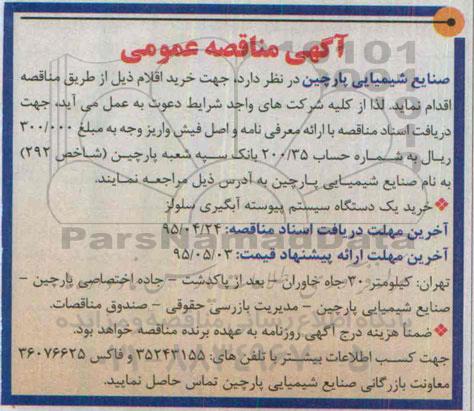 آگهی مناقصه عمومی
صنایع شیمیایی پارچین در نظر دارد، جهت خرید اقلام ذیل از طریق مناقصه
اقدام نماید. لذا از کلیه شرکت های واجد شرایط دعوت به عمل می آید، جهت
دریافت اسناد مناقصه با ارائه معرفی نامه و اصل فیش واریز وجه به مبلغ ۳۰۰/۰۰۰
ریال به شماره حساب ۲۰۰/۳۵ بانک سپه شعبه پارچین (شاخص ۲۹۲)
به نام صنایع شیمیایی پارچین به آدرس ذیل مراجعه نمایند.
❖خرید یک دستگاه سیستم پیوسته آبگیری سلولز
آخرین مهلت دریافت اسناد مناقصه: ۹۵/۰۴/۲۴
آخرین مهلت ارائه پیشنهاد قیمت: ۹۵/۰۵/۰۳
تهران: کیلومتر ۳۰ جاه خاوران – بعد از پاکدشت – جاده اختصاصی پارچین –
صنایع شیمیایی پارچین – مدیریت بازرسی حقوقی – صندوق مناقصات.
❖ضمنا هزینه درج آگهی روزنامه به عهده برنده مناقصه خواهد بود.
جهت کسب اطلاعات بیشتر با تلفن های: ۳۵۲۴۳۱۵۵ و فاکس ۳۶۰۷۶۶۲۵
معاونت بازرگانی صنایع شیمیایی پارچین تماس حاصل نمایید.
ParsNamadData